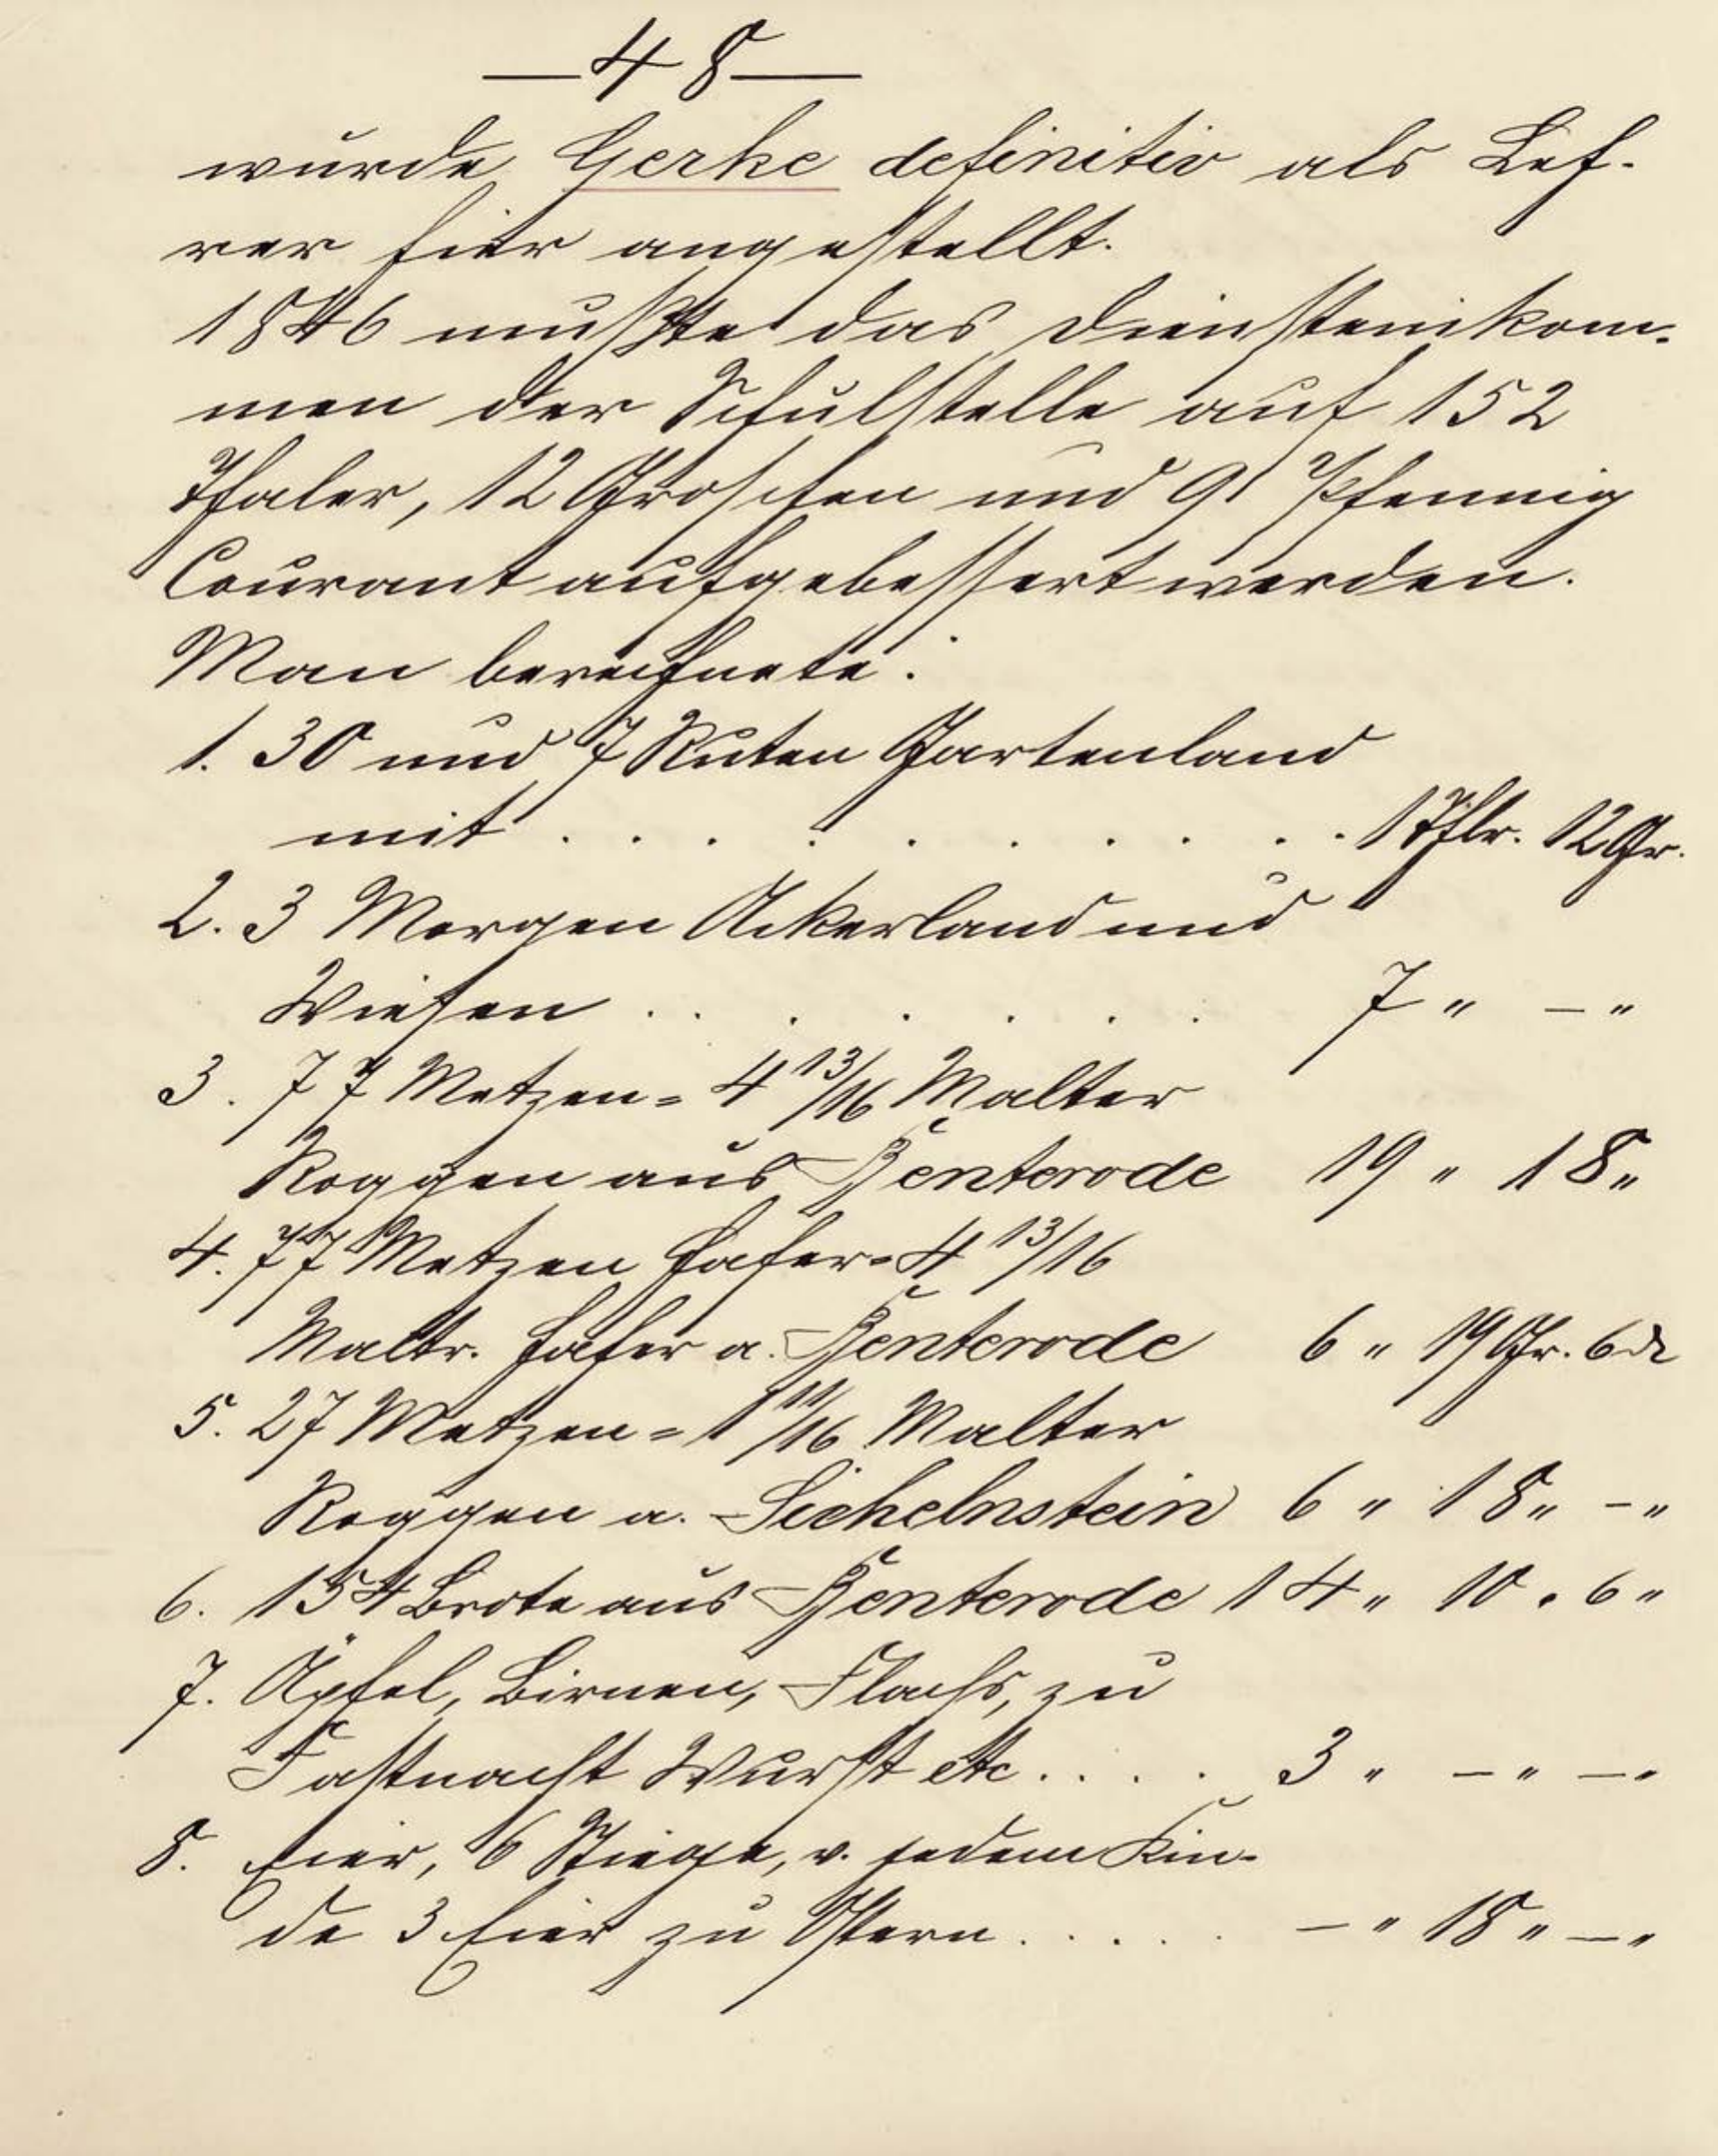 — 48 —
wurde Gerke definitiv als Leh-
rer hier angestellt.
1846 mußte das Diensteinkom-
men der Schulstelle auf 152
Thaler, 12 Groschen und 9 Pfennig
Courant aufgebessert werden.
Man berechnete:
1. 30 und 7 Ruten Gartenland
mit . . . . . . . . . . 1 Thlr. 12 Gr.
2. 3 Morgen Ackerland und
Wiesen . . . . . . . 7 " — "
3. 77 Metzen = 4 13/16 Malter
Roggen aus Benterode 19 " 18 "
4. 77 Metzen Hafer = 4 13/16
Maltr. Hafer a. Benterode 6 " 19 Gr. 6 d
5. 27 Metzen = 1 11/16 Malter
Roggen a. Sichelnstein 6 " 18 " — "
6. 154 Brote aus Benterode 14 " 10 " 6 "
7. Äpfel, Birnen, Flachs, zu
Fastnacht Wurst etc. . . . . 3 " — " — "
8. Eier, 6 Stiege, v. jedem Kin-
de 3 Eier zu Ostern . . . . . — " 18 " — "